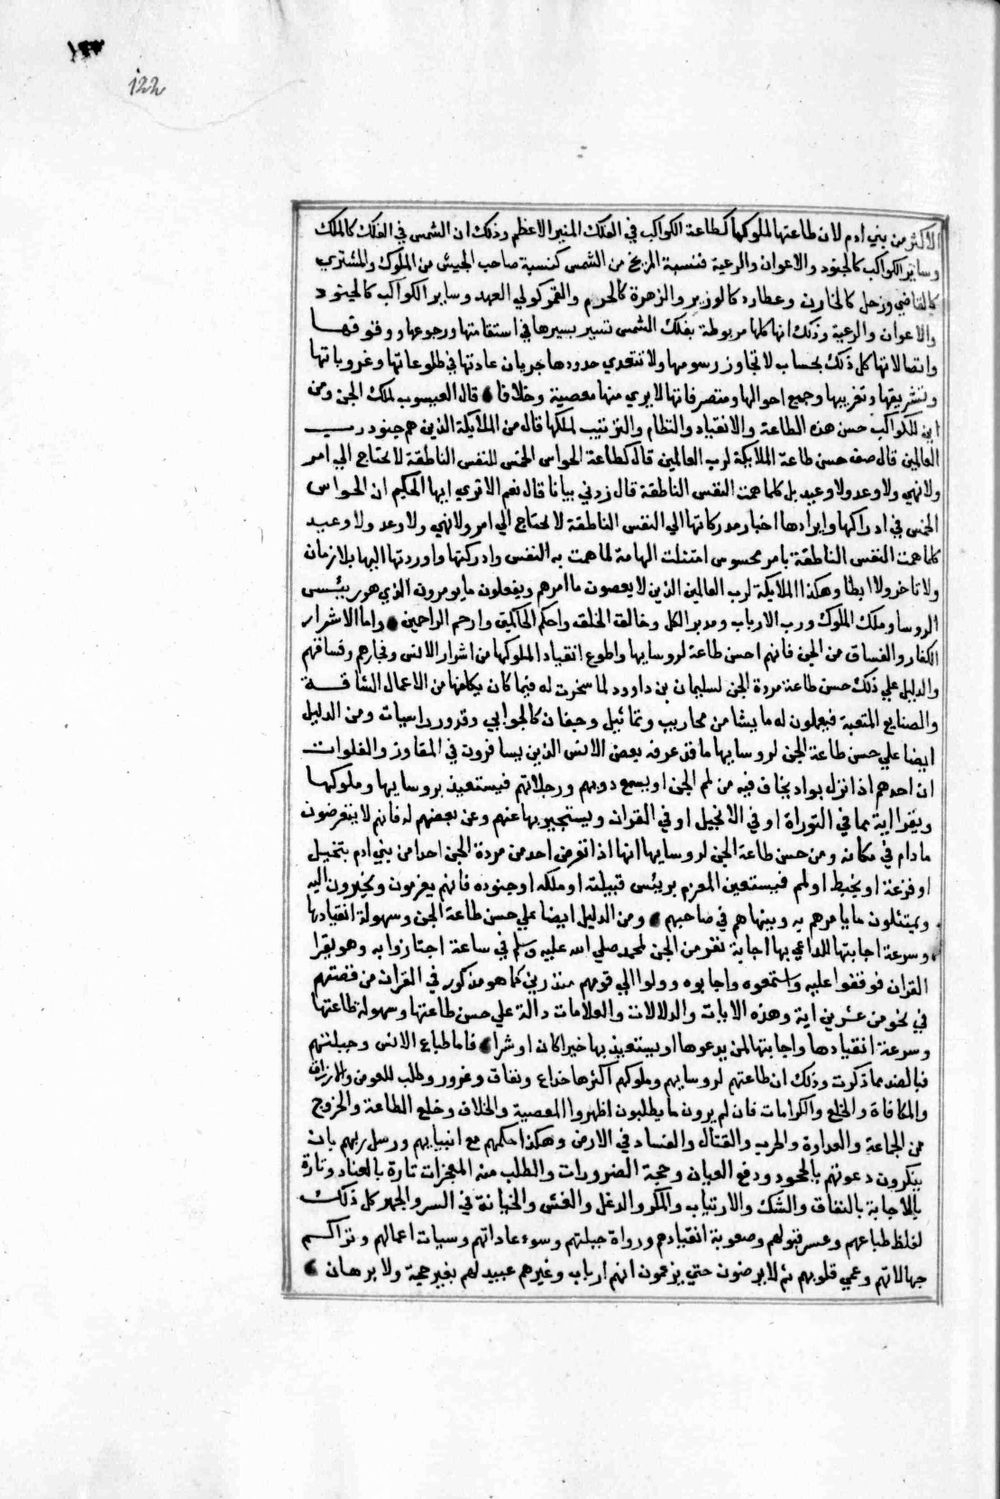 ١٢٢
122
الاكثر من بني ادم لان طاعتها لملوكها كطاعة الكواكب في الفلك المنير الاعظم وذلك ان الشمس في الفلك كالملك
وساير الكواكب كالجنود والاعوان والرعية فنسبة المريخ من الشمس كنسبة صاحب الجيش من الملوك والمشتري
كالقاضي وزحل كالخازن وعطارد كالوزير والزهرة كالحرم والقمر كولي العهد وساير الكواكب كالجنود
والاعوان والرعية وذلك انها كلها مربوطة بفلك الشمس تسير بسيرها في استقامتها ورجوعها ووقوفها
واتصالاتها كل ذلك بحساب لا تجاوز رسومها ولا تتعدي حدودها جريان عادتها في طلوعاتها وغروباتها
وتشريقها وتغريبها وجمع احوالها ومتصرفاتها لا يري منها معصية وخلافا قال اليعسوب لملك الجن ومن
اين للكواكب حسن هذه الطاعة والانقياد والنظام والترتيب لملكها قال من الملايكة الذين هم جنود رب
العالمين قال صف حسن طاعة الملايكة لرب العالمين قال كطاعة الحواس الخمس للنفس الناطقة لا تحتاج الي امر
ولا نهي ولا وعد ولا وعيد بل كلما همت النفس الناطقة قال زدني بيانا قال نعم الا تري ايها الحكيم ان الحواس
الخمس في ادراكها وايرادها اخبار مدركاتها الي النفس الناطقة لا تحتاج الي امر ولا نهي ولا وعد ولا وعيد
كلما همت النفس الناطقة بامر محسوس امتثلت الهامة لما همت به النفس وادركتها واوردتها اليها بلا زمان
ولا تاخر ولا ابطا وهكذا الملايكة لرب العالمين الذين لا يعصون ما امرهم ويفعلون ما يومرون الذي هو رييس
الروسا وملك الملوك ورب الارباب ومدبر الكل وخالقة الخلقه واحكم الحاكمين وارحم الراحمين واما الاشرار
الكفار والفساق من الجن فانهم احسن طاعة لروسايها واطوع انقياد الملوكها من اشرار الانس وفجارهم وفساقهم
والدليل علي ذلك حسن طاعة مردة الجن لسليمان بن داوود لما سخرت له فيما كان يكلفها من الاعمال الشاقة
والصنايع المتعبة فيعلون له ما يشا من محاريب وتماثيل وجفان كالجوابي وقدور راسيات ومن الدليل
ايضا علي حسن طاعة الجن لروسايها ما قد عرفه بعض الانس الذين يسافرون في المفاوز والفلوات
ان احدهم اذا نزل بواد يخاف فيه من لم الجن او يسمع دويهم ورجلاتهم فيستعيذ بروسايها وملوكها
ويقرا اية مما في التوراة او في الانجيل او في القران ويستجير بها عنهم وعن بعضهم له فانهم لا يتعرضون
مادام في مكانه ومن حسن طاعة الجن لروسايها انها اذا تعرض احد من مردة الجن احدا من بني ادم بتخييل
او فزعة او تخبط او لم فيستعين المعزم برييس قبيلته او ملكه او جنوده فانهم يعزمون ويحشرون اليه
ويمتثلون ما يامرهم به وينهاهم في صاحبهم ومن الدليل ايضا علي حسن طاعة الجن وسهولة انقيادها
وسرعة اجابتها للداعي بها اجابة نفر من الجن لمحمد صلي الله عليه وسلم في ساعة اجتازوا به وهو يقرا
القران فوقفوا عليه واستمعوه واجابوه وولوا الي قومهم منذرين كما هو مذكور في القران من قصتهم
في نحو من عشرين اية وهذه الايات والدلالات والعلامات دالة علي حسن طاعتها وسهولة طاعتها
وسرعة انقيادها واجابتها لمن يدعوها او يستعيذ بها خيرا كان او شرا فاما طباع الانس وجبلتهم
فبالضد مما ذكرت وذلك ان طاعتهم لروسايهم وملوكهم اكثرها خداع ونفاق وغرور وطلب للعوض والارزاق
والمكافاة والخلع والكرامات فان لم يرون ما يطلبون اظهروا المعصية والخلاف وخلع الطاعة والخروج
من الجماعة والعداوة والحرب والقتال والفساد في الارض وهكذا حكمهم مع انبيايهم ورسل ربهم بان
ينكرون دعوتهم بالجحود ودفع العيان وحجة الضرورات والطلب منه المعجزات تارة بالعناد وتارة
بالاجابة بالنفاق والشك والارتياب والمكر والدغل والغش والخيانة في السر والجهر كل ذلك
لغلظ طباعهم وعسر قبولهم وصعوبة انقيادهم ورداة جبلتهم وسوء عاداتهم وسيات اعمالهم وتراكم
جهالاتهم وعمي قلوبهم ثم لا يرضون حتي يزعمون انهم ارباب وغيرهم عبيد لهم بغير حجة ولا برهان